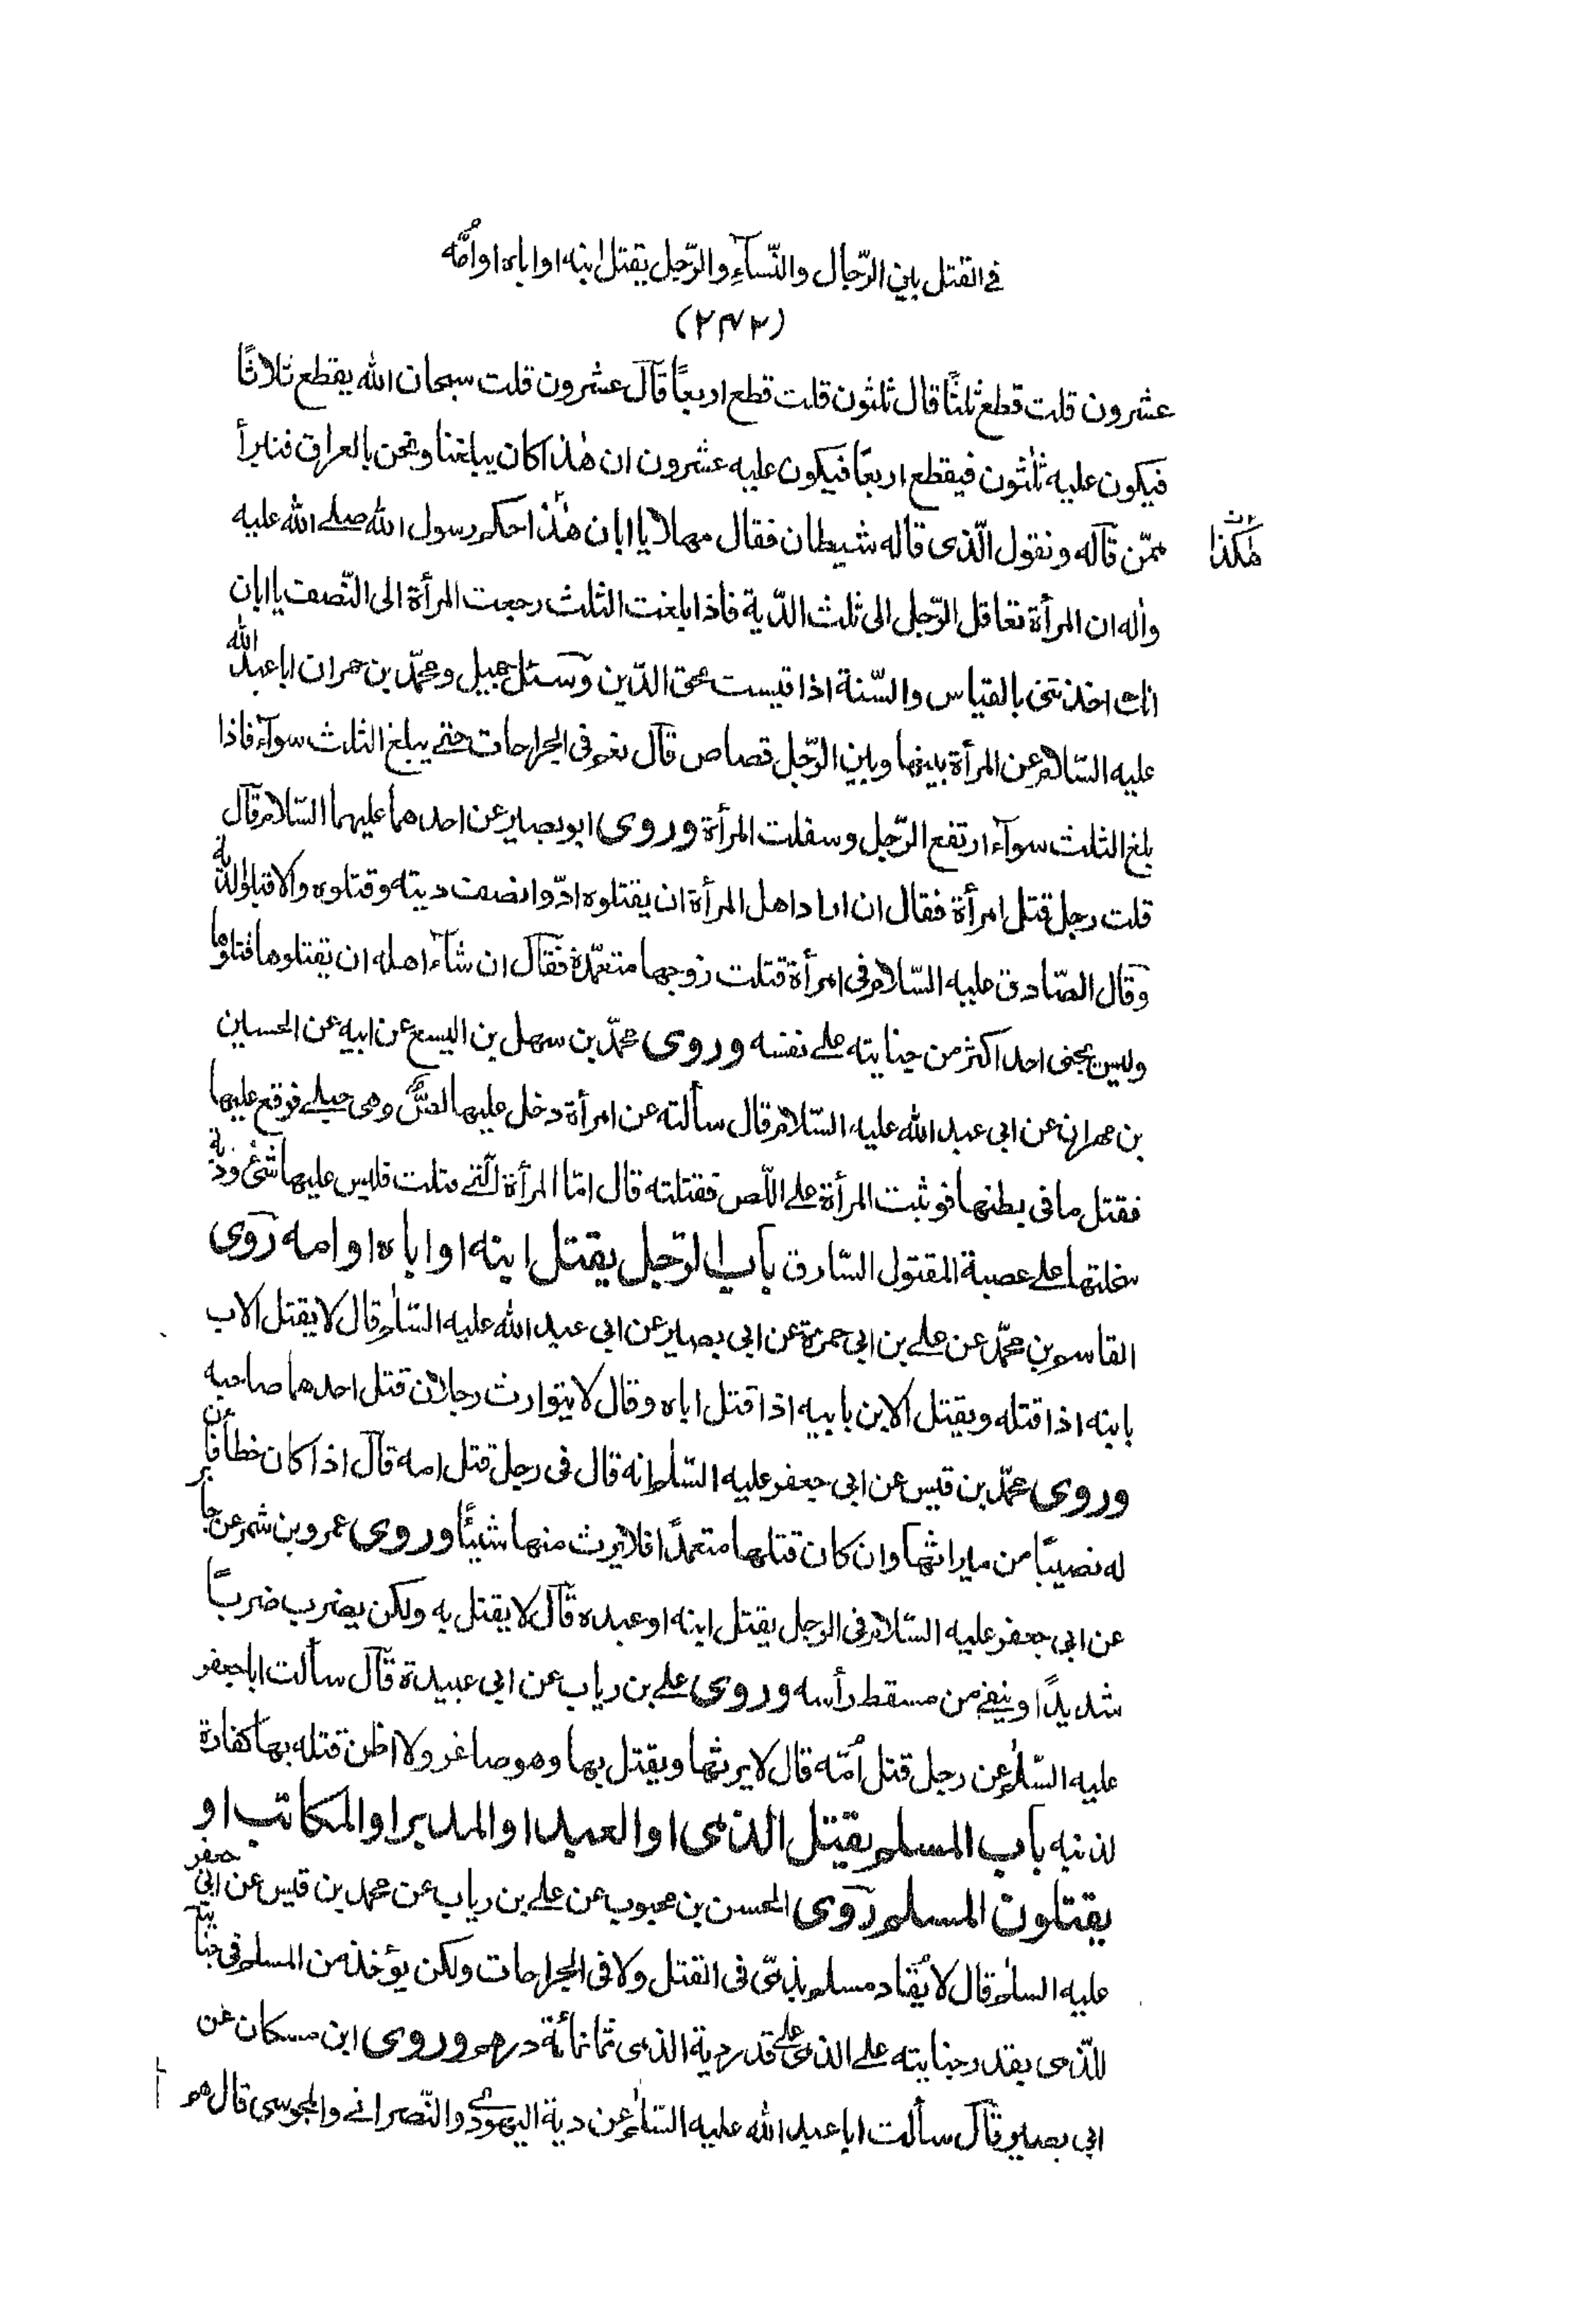 في القتل بين الرّجال والنّسآءِ والرّجل يقتل ابنه او اباه او اُمّه
(٢٧٢)
عشرون قلت قطع ثلثًا قال ثلثون قلت قطع اربعًا قآل عشرون قلت سبحان الله يقطع ثلاثًا
فيكون عليه ثلٰثون فيقطع اربعًا فيكون عليه عشرون ان هٰذا كان يبلغنا ونحن بالعراق فنابرأ
ممّن قآله ونقول الّذى قاله شيطان فقال مهلا يا ابان هٰذا حكم رسول الله صلے الله عليه
هٰكذا
واٰله ان المرأة تعاقل الرّجل الى ثلث الدّية فاذا بلغت الثلث رجعت المرأة الى النّصف يا ابان
انك اخذتنى بالقياس والسّنة اذا قيست محق الدّين وسئل جميل ومحمّد بن حمران ابا عبد الله
عليه السّلام عن المرأة بينها وبين الرّجل قصاص قآل نعم فى الجراحات حتے يبلغ الثلث سوآء فاذا
بلغ الثلث سوآء ارتفع الرّجل وسفلت المرأة وروى ابو بصير عن احدهما عليهما السّلام قآل
قلت رجل قتل امرأة فقال ان اراد اهل المرأة ان يقتلوه ادّوا نصف ديته وقتلوه والا قبلوا الدية
وقال الصّادق عليه السّلام فى امرأة قتلت زوجها متعمّدة فقآل ان شآء اهله ان يقتلوها قتلوها
وليس يجنى احد اكثر من جنايته علے نفسه وروى محمّد بن سهل بن اليسع عن ابيه عن الحسين
بن مهران عن ابى عبد الله عليه السّلام قال سألته عن امرأة دخل عليها اللصّ وهى حبلے فوقع عليها
فقتل ما فى بطنها فوثبت المرأة علے اللّص فقتلته قال امّا المرأة الّتے قتلت فليس عليها شئ ودية
سخلتها علے عصبة المقتول السّارق باب الرّجل يقتل ابنه او اباه او امه روى
القاسم بن محمّد عن علے بن ابى حمزة عن ابى بصير عن ابى عبد الله عليه السّلٰم قال لا يقتل الاب
بابنه اذا قتله ويقتل الابن بابيه اذا قتل اباه وقال لا يتوارث رجلان قتل احدهما صاحبه
وروى محمّد بن قيس عن ابى جعفر عليه السّلٰم انه قال فى رجل قتل امه قآل اذا كان خطأ فان
له نصيبًا من ميراثها وان كان قتلها متعمدًا فلا يرث منها شيئًا وروى عمرو بن شمر عن جابر
عن ابى جعفر عليه السّلام فى الرجل يقتل ابنه او عبده قآل لا يقتل به ولكن يضرب ضربًا
شديدًا وينفے من مسقط رأسه وروى علے بن رياب عن ابى عبيدة قآل سألت ابا جعفر
عليه السّلٰم عن رجل قتل اُمّه قال لا يرثها ويقتل بها وهو صاغر ولا اظن قتله بها كفارة
لذنبه باب المسلم يقتل الذمى او العبد او المدبر او المكاتب او
يقتلون المسلم روى الحسن بن محبوب عن علے بن رياب عن محمد بن قيس عن ابى جعفر
عليه السلٰم قال لا يُقاد مسلم بذمّى فى القتل ولا فى الجراحات ولكن يؤخذ من المسلم فى جنايته
للذّمى بقدر جنايته علے الذمى علے قدر دية الذمى ثمانمائة درهم وروى ابن مسكان عن
ابى بصير قآل سألت ابا عبد الله عليه السّلٰم عن دية اليهودى والنّصرانے والمجوسى قال هم